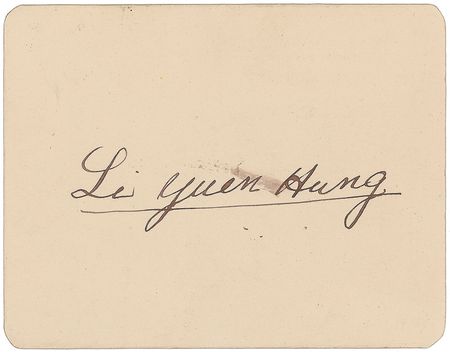 Li Yuen Hung